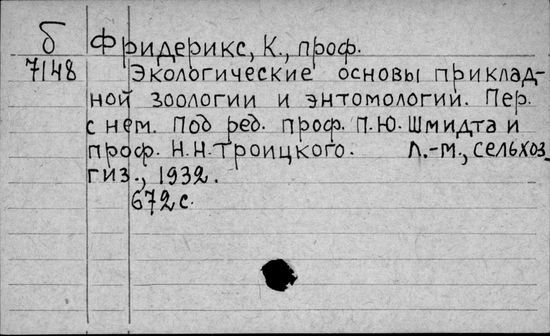 б Фридерикс, К., проф.
7148 Экологические основы приклад-
ной зоологии и энтомологии. Пер.
с нем. Под ред. проф. П.Ю. Шмидта и
проф. Н.Н. Троицкого. Л.-М., Сельхоз-
гиз., 1932.
672 с.